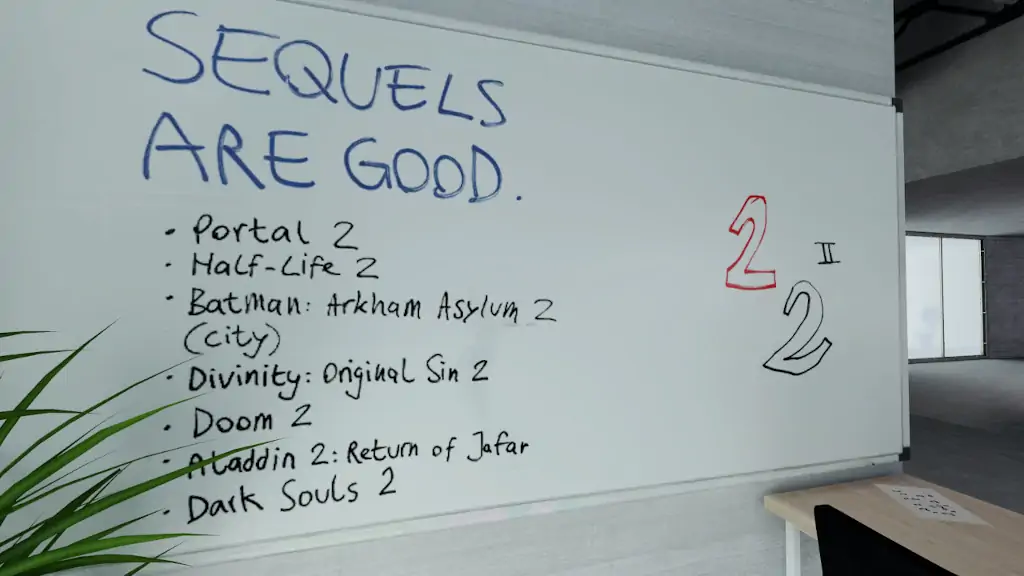 SEQUELS
ARE GOOD.
• Portal 2
• Half-Life 2
• Batman: Arkham Asylum 2
(City)
• Divinity: Original Sin 2
• Doom 2
• Aladdin 2: Return of Jafar
• Dark Souls 2
2
II
2